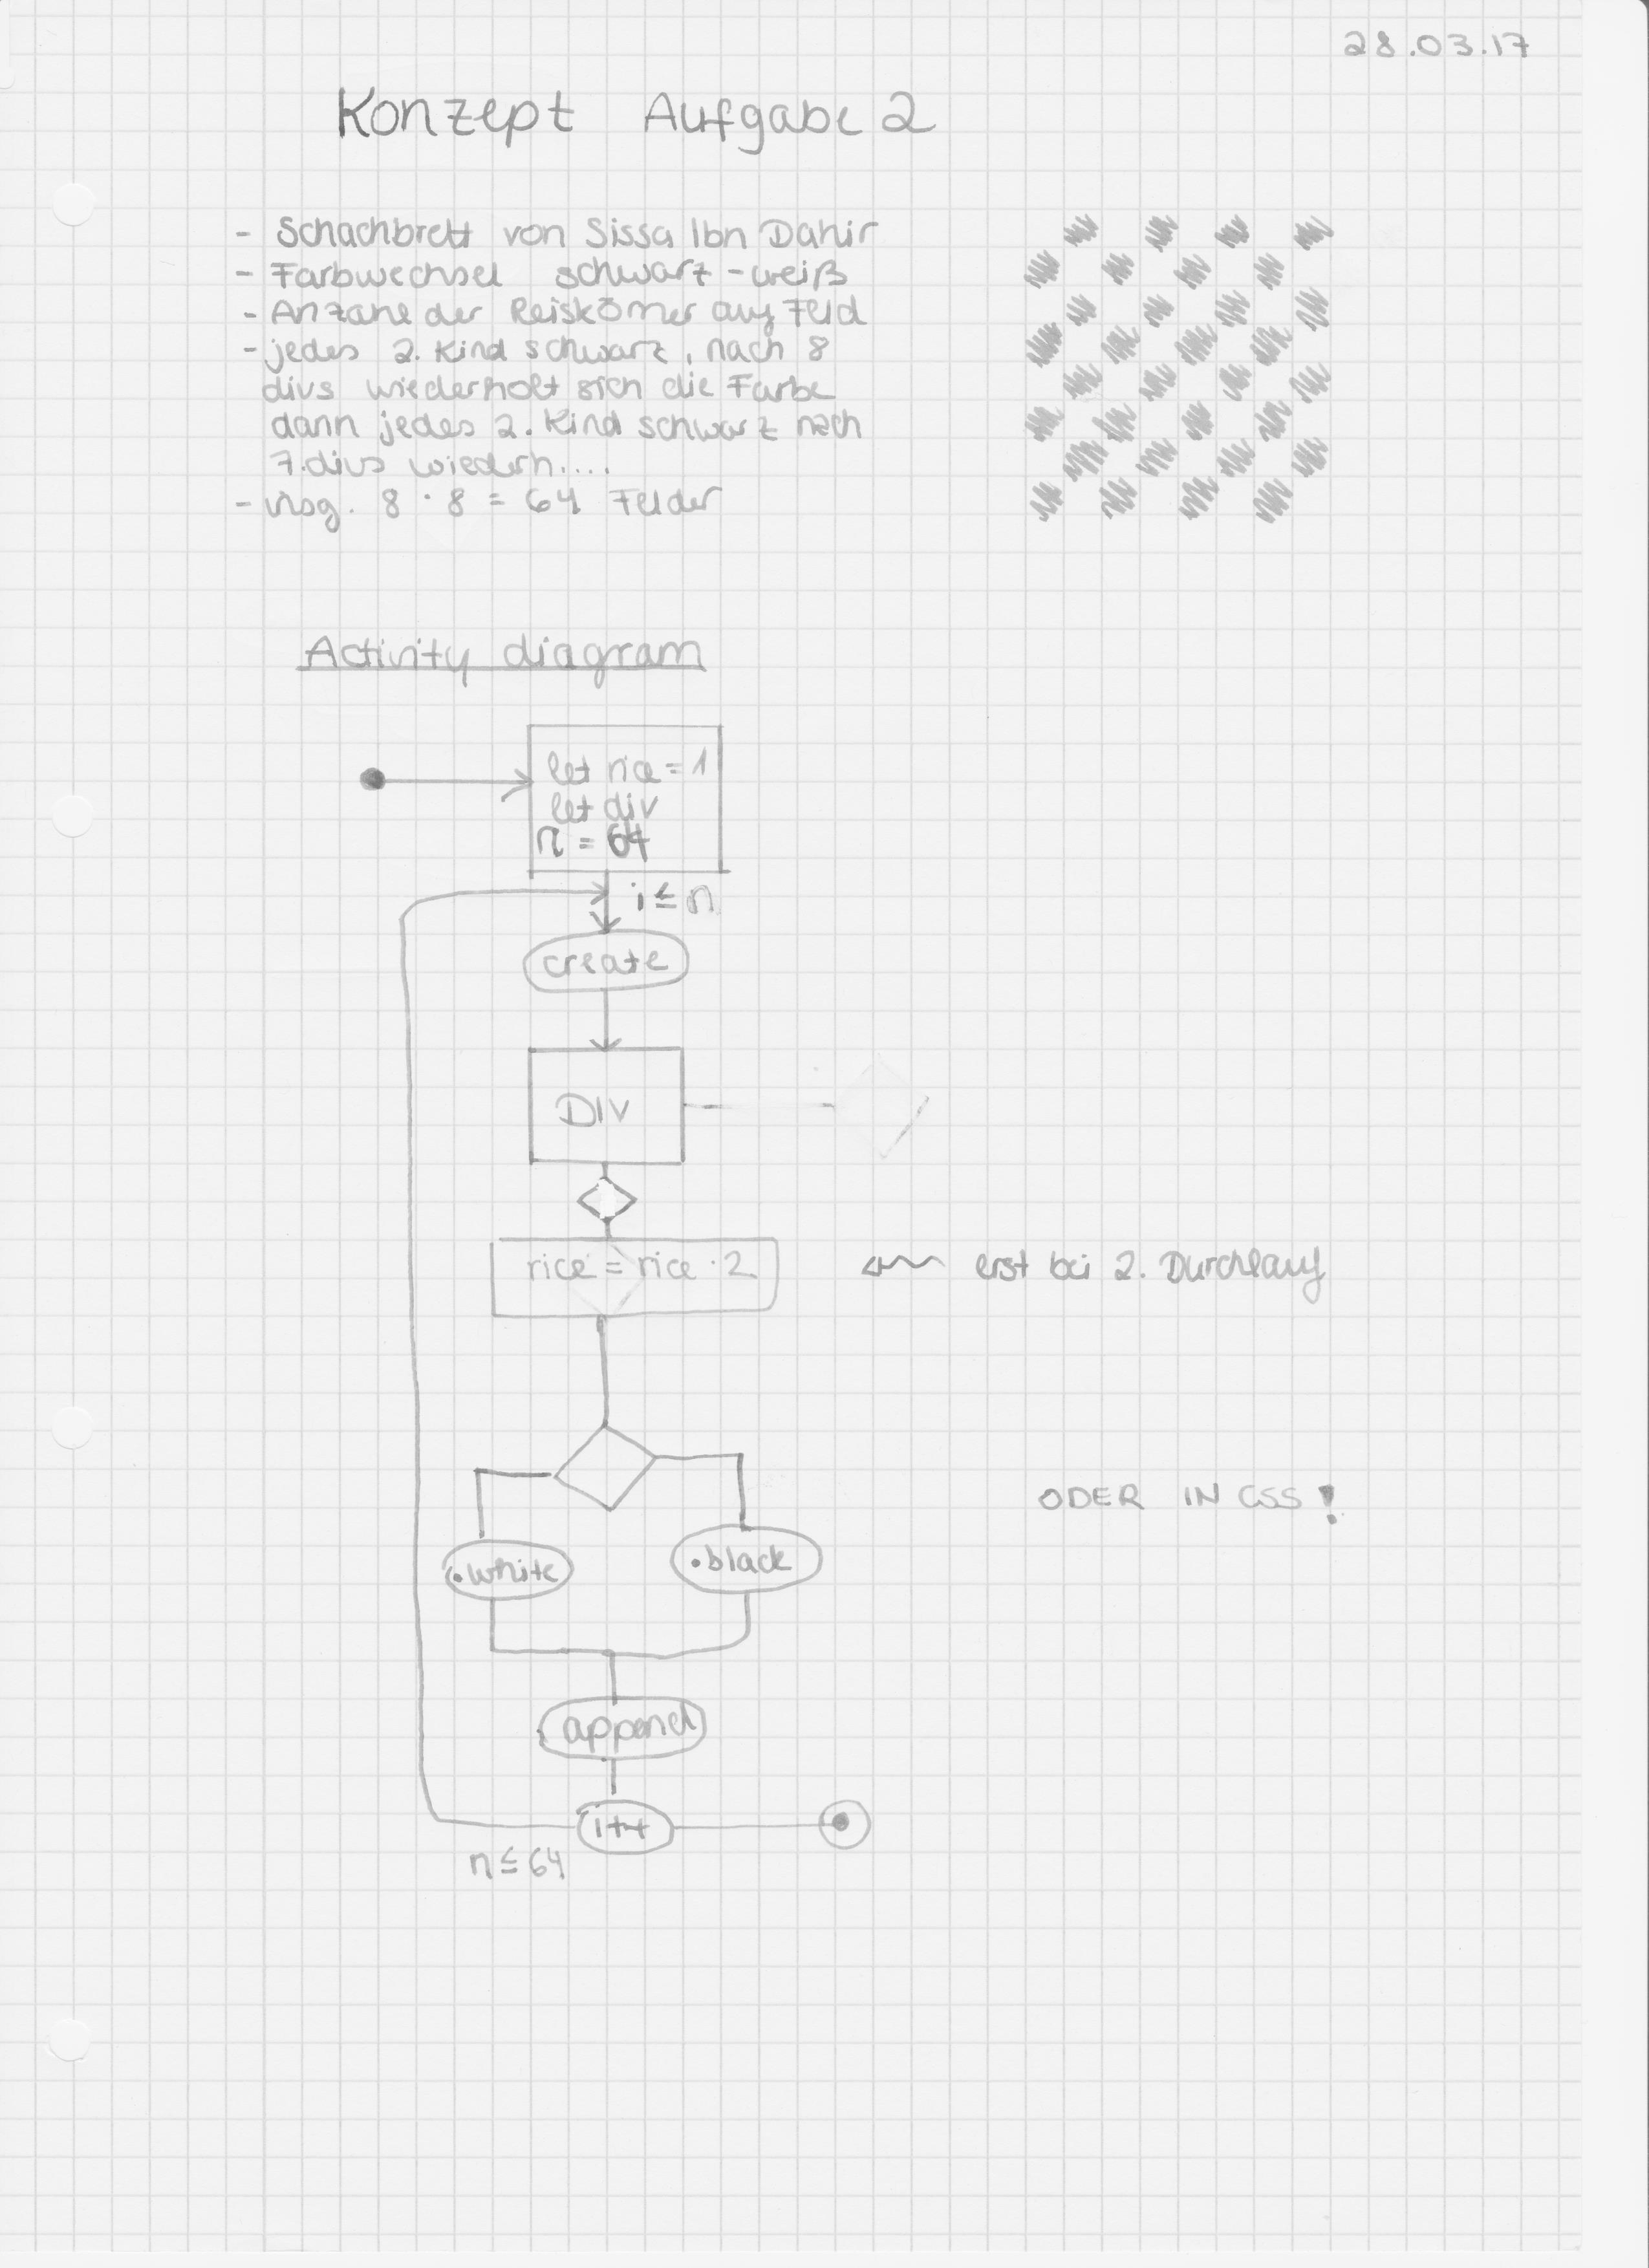 28.03.17
Konzept Aufgabe 2
- Schachbrett von Sissa Ibn Dahir
- Farbwechsel schwarz - weiß
- Anzahl der Reiskörner auf Feld
- jedes 2. Kind schwarz, nach 8
divs wiederholt sich die Farbe
dann jedes 2. Kind schwarz nach
7. divs wiederh....
- insg. 8 · 8 = 64 Felder
Activity diagram
let rice = 1
let div
n = 64
i ≤ n
create
DIV
rice = rice · 2
erst bei 2. Durchlauf
ODER IN CSS !
.white
.black
append
i++
n ≤ 64